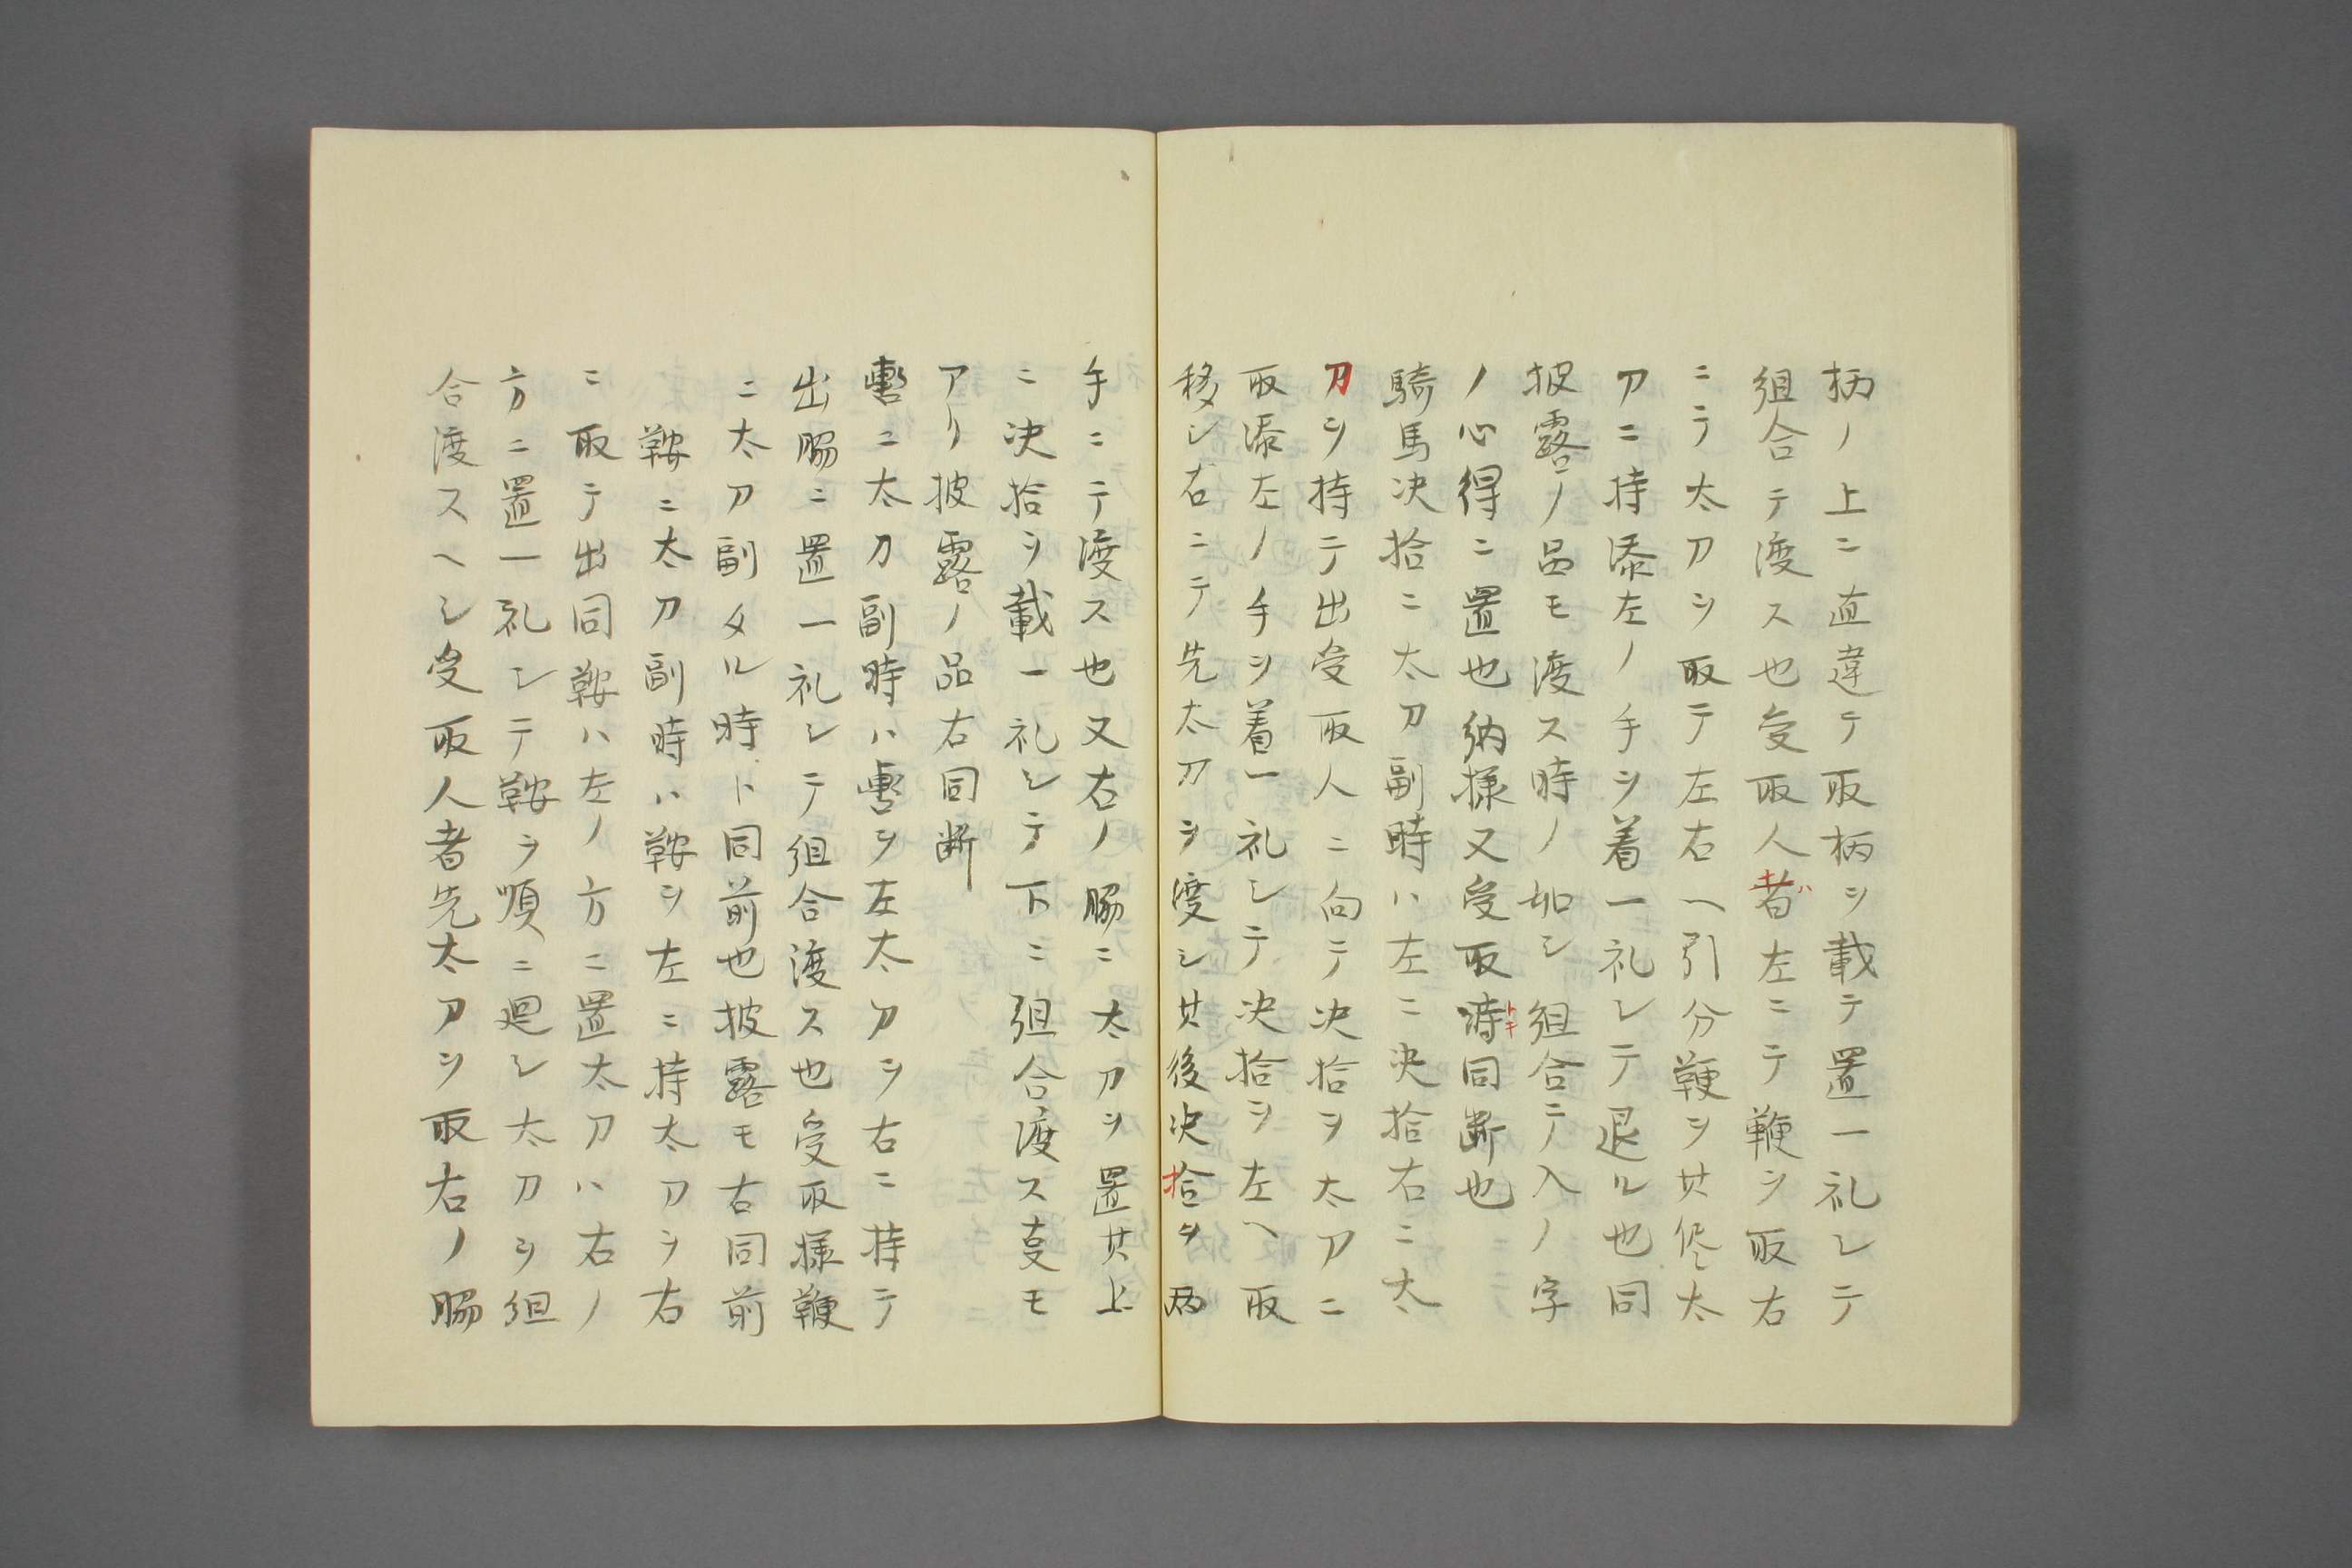 柄ノ上ニ直違テ取柄ヲ載テ置一礼シテ
組合テ渡ス也受取人者ハ左ニテ鞭ヲ取右
ニテ太刀ヲ取テ左右ヘ引分鞭ヲ其侭太
刀ニ持添左ノ手ヲ着一礼シテ退ル也同
披露ノ品モ渡ス時ノ如シ組合テ入ノ字
ノ心得ニ置也納様又受取時トキ同断也
騎馬決拾ニ太刀副時ハ左ニ决拾右ニ太
刀ヲ持テ出受取人ニ向テ决拾ヲ太刀ニ
取添左ノ手ヲ着一礼シテ决拾ヲ左ヘ取
移シ右ニテ先太刀ヲ渡シ其後决拾ヲ両
手ニテ渡ス也又右ノ脇ニ太刀ヲ置其上
ニ决拾ヲ載一礼シテ下ニ組合渡ス叓モ
アリ披露ノ品右同断
轡ニ太刀副時ハ轡ヲ左太刀ヲ右ニ持テ
出脇ニ置一礼シテ組合渡ス也受取様鞭
ニ太刀副タル時ト同前也披露モ右同前
鞍ニ太刀副時ハ鞍ヲ左ニ持太刀ヲ右
ニ取テ出同鞍ハ左ノ方ニ置太刀ハ右ノ
方ニ置一礼シテ鞍ヲ順ニ廻シ太刀ヲ組
合渡スヘシ受取人者先太刀ヲ取右ノ脇